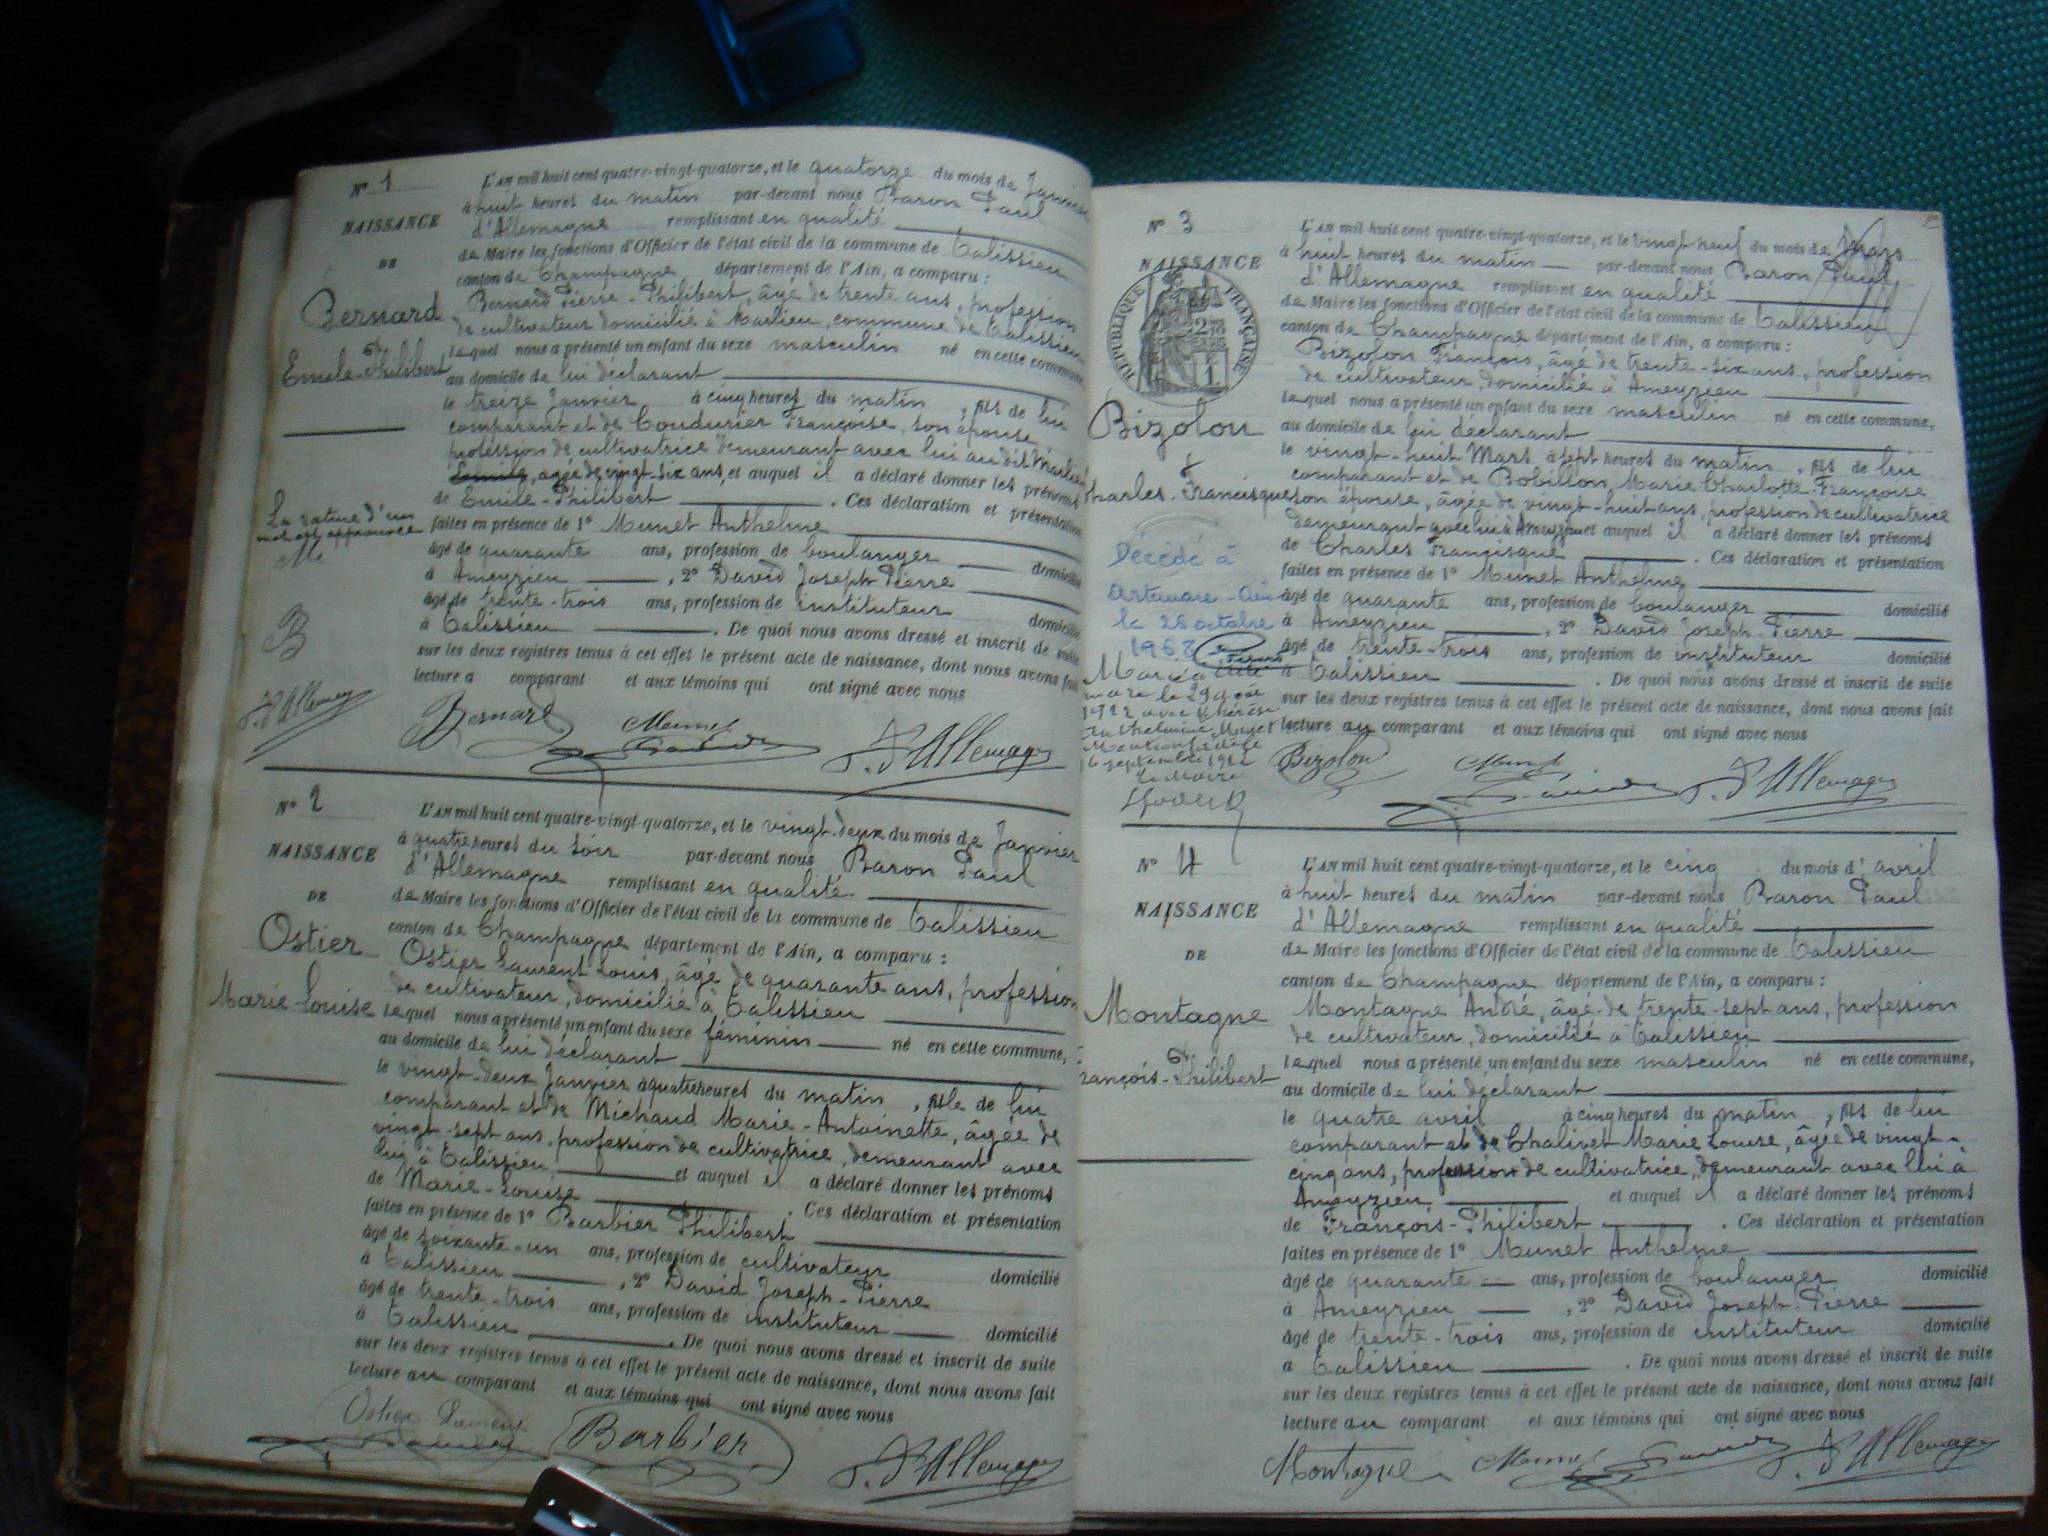 N° 1
NAISSANCE
DE
Bernard
Emile-Philibert
La rature d'un
mot est approuvée
B
P. d'Allemagne
L'AN mil huit cent quatre-vingt-quatorze, et le quatorze du mois de Janvier
à huit heures du matin par-devant nous Baron Paul
d'Allemagne remplissant en qualité
de Maire les fonctions d'Officier de l'état civil de la commune de Talissieu
canton de Champagne département de l'Ain, a comparu :
Bernard Pierre-Philibert, âgé de trente ans, profession
de cultivateur domicilié à Marlieu, commune de Talissieu
Lequel nous a présenté un enfant du sexe masculin né en cette commune,
au domicile de lui déclarant
le treize Janvier à cinq heures du matin, fils de lui
comparant et de Coudurier Françoise, son épouse
profession de cultivatrice demeurant avec lui au dit Marlieu
âgée de vingt-six ans, et auquel il a déclaré donner les prénoms
de Emile-Philibert . Ces déclaration et présentation
faites en présence de 1° Munet Anthelme
âgé de quarante ans, profession de boulanger domicilié
à Ameyzieu , 2° David Joseph-Pierre
âgé de trente-trois ans, profession de instituteur domicilié
à Talissieu . De quoi nous avons dressé et inscrit de suite
sur les deux registres tenus à cet effet le présent acte de naissance, dont nous avons fait
lecture a comparant et aux témoins qui ont signé avec nous
Bernard Munet David P. d'Allemagne
N° 2
NAISSANCE
DE
Ostier
Marie-Louise
L'AN mil huit cent quatre-vingt-quatorze, et le vingt-deux du mois de Janvier
à quatre heures du soir par-devant nous Baron Paul
d'Allemagne remplissant en qualité
de Maire les fonctions d'Officier de l'état civil de la commune de Talissieu
canton de Champagne département de l'Ain, a comparu :
Ostier Laurent Louis, âgé de quarante ans, profession
de cultivateur, domicilié à Talissieu
Lequel nous a présenté un enfant du sexe féminin né en cette commune,
au domicile de lui déclarant
le vingt-deux Janvier à quatre heures du matin, fille de lui
comparant et de Michaud Marie-Antoinette, âgée de
vingt-sept ans, profession de cultivatrice, demeurant avec
lui à Talissieu et auquel il a déclaré donner les prénoms
de Marie-Louise . Ces déclaration et présentation
faites en présence de 1° Barbier Philibert
âgé de soixante-un ans, profession de cultivateur domicilié
à Talissieu , 2° David Joseph-Pierre
âgé de trente-trois ans, profession de instituteur domicilié
à Talissieu . De quoi nous avons dressé et inscrit de suite
sur les deux registres tenus à cet effet le présent acte de naissance, dont nous avons fait
lecture au comparant et aux témoins qui ont signé avec nous
Ostier Laurent David Barbier P. d'Allemagne
N° 3
NAISSANCE
RÉPUBLIQUE FRANÇAISE
Bizolon
Charles-Francisque
Décédé à
Artemare - Ain
le 28 octobre
1968
Marié à
le 29 août
1922 avec Thérèse
Anthelmine Muget
Mention faite le
16 septembre 1922
Le Maire
L'AN mil huit cent quatre-vingt-quatorze, et le vingt-neuf du mois de Mars
à huit heures du matin par-devant nous Baron Paul
d'Allemagne remplissant en qualité
de Maire les fonctions d'Officier de l'état civil de la commune de Talissieu
canton de Champagne département de l'Ain, a comparu :
Bizolon François, âgé de trente-six ans, profession
de cultivateur, domicilié à Ameyzieu
Lequel nous a présenté un enfant du sexe masculin né en cette commune,
au domicile de lui déclarant
le vingt-huit Mars à sept heures du matin, fils de lui
comparant et de Bobillon, Marie Charlotte-Françoise
son épouse, âgée de vingt-huit ans, profession de cultivatrice
demeurant avec lui à Ameyzieu et auquel il a déclaré donner les prénoms
de Charles Francisque . Ces déclaration et présentation
faites en présence de 1° Munet Anthelme
âgé de quarante ans, profession de boulanger domicilié
à Ameyzieu , 2° David Joseph-Pierre
âgé de trente-trois ans, profession de instituteur domicilié
à Talissieu . De quoi nous avons dressé et inscrit de suite
sur les deux registres tenus à cet effet le présent acte de naissance, dont nous avons fait
lecture au comparant et aux témoins qui ont signé avec nous
Bizolon Munet David P. d'Allemagne
N° 4
NAISSANCE
DE
Montagne
François-Philibert
L'AN mil huit cent quatre-vingt-quatorze, et le cinq du mois d'avril
à huit heures du matin par-devant nous Baron Paul
d'Allemagne remplissant en qualité
de Maire les fonctions d'Officier de l'état civil de la commune de Talissieu
canton de Champagne département de l'Ain, a comparu :
Montagne André, âgé de trente-sept ans, profession
de cultivateur, domicilié à Talissieu
Lequel nous a présenté un enfant du sexe masculin né en cette commune,
au domicile de lui déclarant
le quatre avril à cinq heures du matin, fils de lui
comparant et de Chalivet Marie Louise, âgée de vingt-
cinq ans, profession de cultivatrice, demeurant avec lui à
Ameyzieu, et auquel il a déclaré donner les prénoms
de François-Philibert . Ces déclaration et présentation
faites en présence de 1° Munet Anthelme
âgé de quarante ans, profession de boulanger domicilié
à Ameyzieu , 2° David Joseph-Pierre
âgé de trente-trois ans, profession de instituteur domicilié
à Talissieu . De quoi nous avons dressé et inscrit de suite
sur les deux registres tenus à cet effet le présent acte de naissance, dont nous avons fait
lecture au comparant et aux témoins qui ont signé avec nous
Montagne Munet David P. d'Allemagne